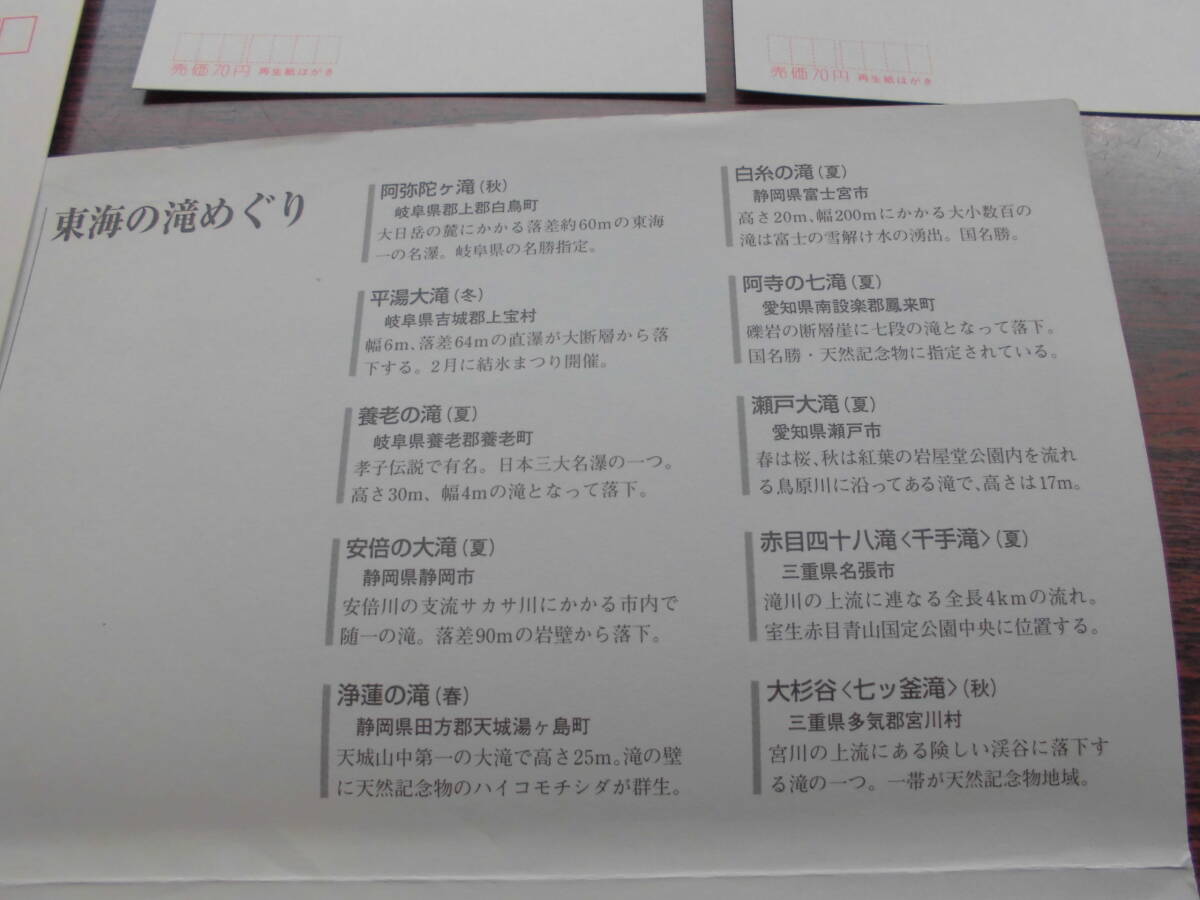 売価70円 再生紙はがき
売価70円 再生紙はがき
東海の滝めぐり
阿弥陀ヶ滝(秋)
岐阜県郡上郡白鳥町
大日岳の麓にかかる落差約60mの東海
一の名瀑。岐阜県の名勝指定。
平湯大滝(冬)
岐阜県吉城郡上宝村
幅6m、落差64mの直瀑が大断層から落
下する。2月に結氷まつり開催。
養老の滝(夏)
岐阜県養老郡養老町
孝子伝説で有名。日本三大名瀑の一つ。
高さ30m、幅4mの滝となって落下。
安倍の大滝(夏)
静岡県静岡市
安倍川の支流サカサ川にかかる市内で
随一の滝。落差90mの岩壁から落下。
浄蓮の滝(春)
静岡県田方郡天城湯ヶ島町
天城山中第一の大滝で高さ25m。滝の壁
に天然記念物のハイコモチシダが群生。
白糸の滝(夏)
静岡県富士宮市
高さ20m、幅200mにかかる大小数百の
滝は富士の雪解け水の湧出。国名勝。
阿寺の七滝(夏)
愛知県南設楽郡鳳来町
礫岩の断層崖に七段の滝となって落下。
国名勝・天然記念物に指定されている。
瀬戸大滝(夏)
愛知県瀬戸市
春は桜、秋は紅葉の岩屋堂公園内を流れ
る鳥原川に沿ってある滝で、高さは17m。
赤目四十八滝〈千手滝〉(夏)
三重県名張市
滝川の上流に連なる全長4kmの流れ。
室生赤目青山国定公園中央に位置する。
大杉谷〈七ッ釜滝〉(秋)
三重県多気郡宮川村
宮川の上流にある険しい渓谷に落下す
る滝の一つ。一帯が天然記念物地域。